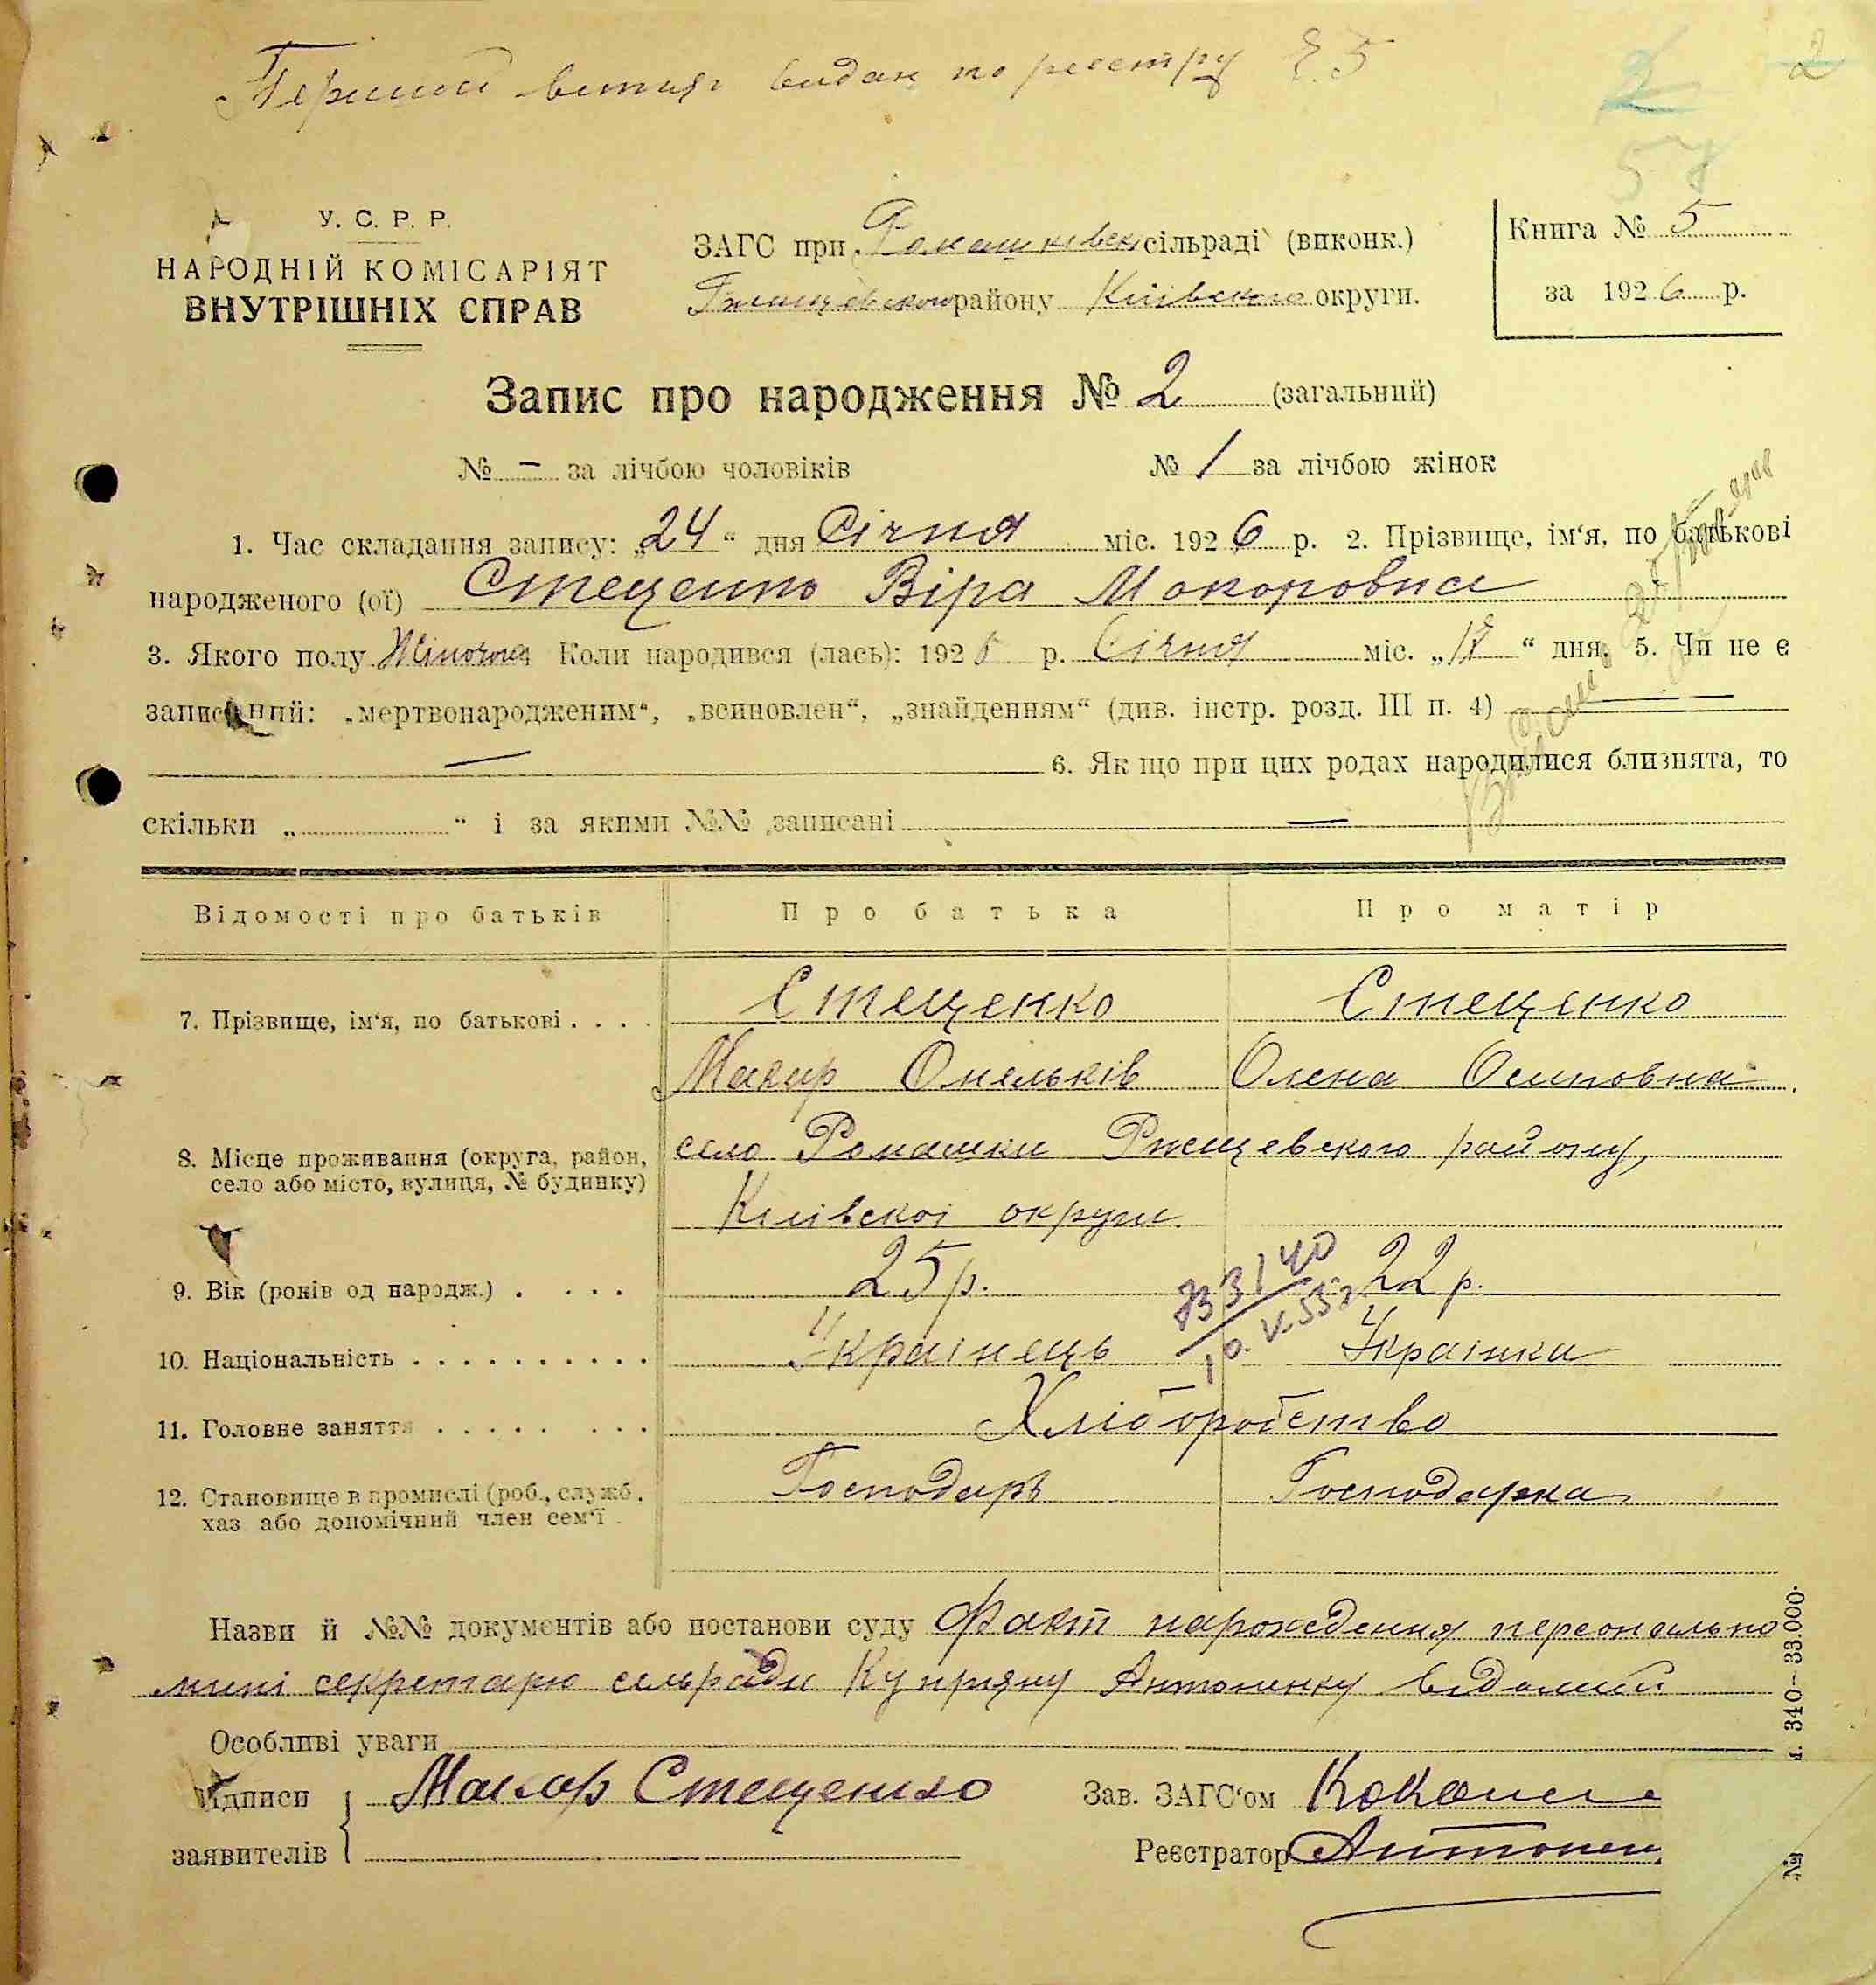 Перший витяг видан по реєстру № 5
2
2
57
У. С. Р. Р.
НАРОДНІЙ КОМІСАРІЯТ
ВНУТРІШНІХ СПРАВ
ЗАГС при Ромашківск сільраді (виконк.)
району Київского округи.
Книга № 5
за 1926 р.
Запис про народження № 2 (загальний)
№ – за лічбою чоловіків № 1 за лічбою жінок
1. Час складання запису: „24“ дня Січня міс. 1926 р. 2. Прізвище, ім‘я, по батькові
народженого (ої) Стеценко Віра Макоровна
3. Якого полу Жіночої Коли народився (лась): 192 р. Січня міс. „18“ дня. 5. Чи не є
записаний: „мертвонародженим“, „всиновлен“, „знайденням“ (див. інстр. розд. III п. 4) —
— 6. Якщо при цих родах народилися близнята, то
скільки „ “ і за якими №№ записані —
Відомості про батьків Про батька Про матір
7. Прізвище, ім‘я, по батькові . . . . Стеценко Стеценко
Макар Омельків Олена Осиповна
8. Місце проживання (округа, район, село Ромашки Ржищевского району,
село або місто, вулиця, № будинку)
Київскоі округи
9. Вік (років од народж.) . . . . 25 р. 22 р.
33140
10. V-55 г
10. Національність . . . . . . . . . . Украінець Украінка
11. Головне заняття . . . . . . . . Хліборобство
12. Становище в промислі (роб., служб. Господарь Господарка
хаз або допомічний член сем‘ї .
Назви й №№ документів або постанови суду Факт народження персонально
мині секретарю сельради Купряну Антоненку відомий
Особливі уваги
Підписи Макар Стеценко Зав. ЗАГС‘ом
заявителів Реєстратор Антонен
м. 340—33.000.
№